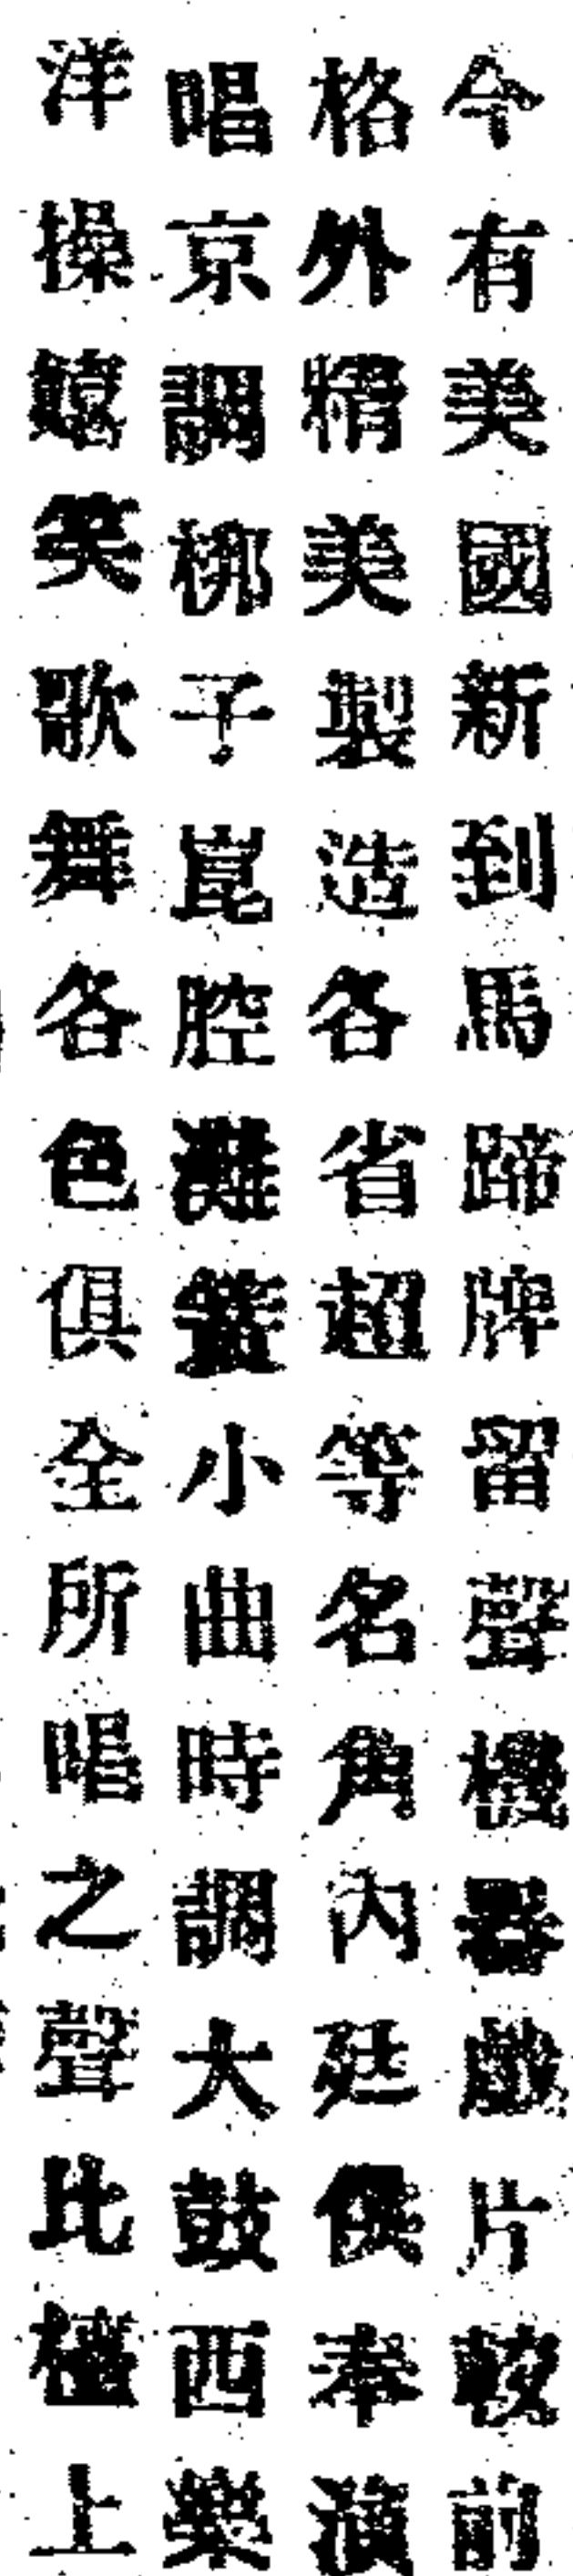 今有美國新到馬蹄牌留聲機器戲片較前
格外精美製造各省超等名角內廷供奉演
唱京調梆子崑腔灘簧小曲時調大鼓西樂
洋操嬉笑歌舞各色俱全所唱之聲比檯上